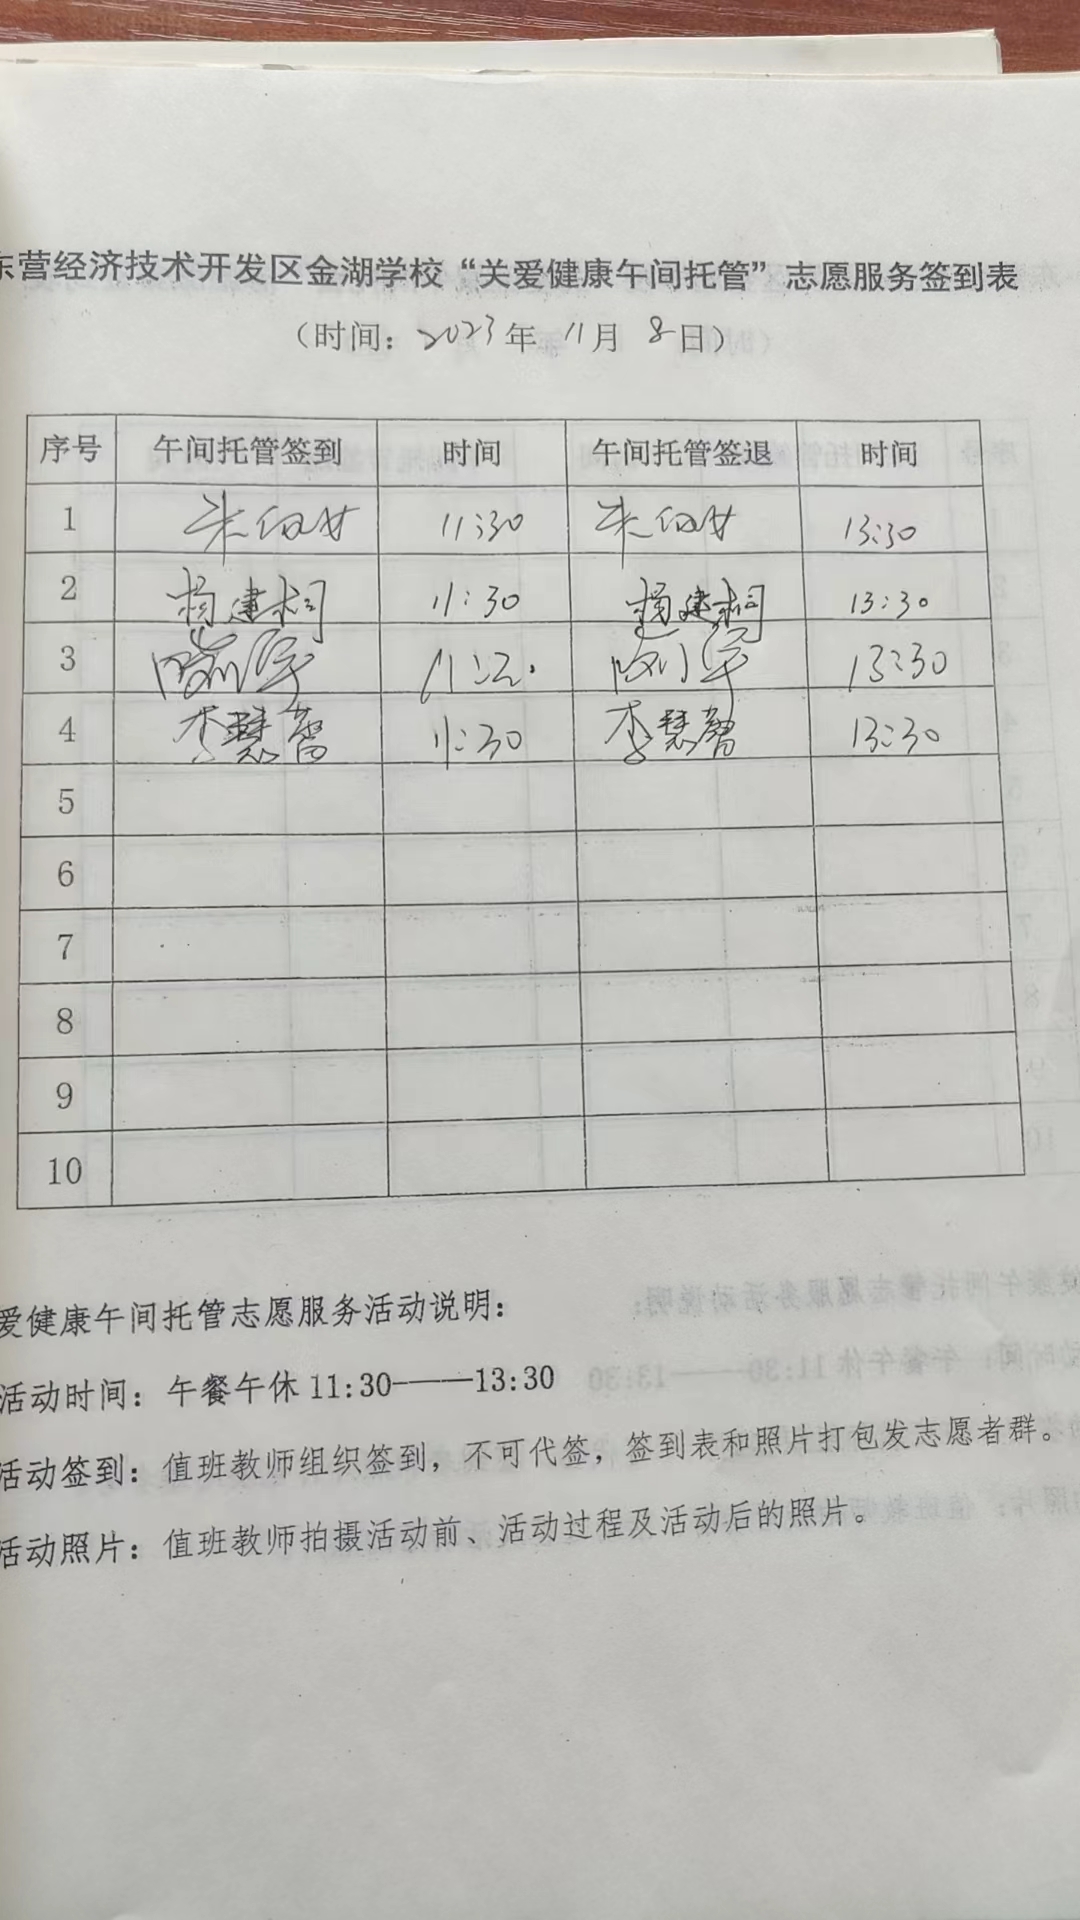 东营经济技术开发区金湖学校“关爱健康午间托管”志愿服务签到表
（时间：2023年 11月 8日）
序号 午间托管签到 时间 午间托管签退 时间
1 朱 11:30 朱 13:30
2 杨建桐 11:30 杨建桐 13:30
3 13:30
4 李慧 11:30 李慧 13:30
5
6
7
8
9
10
爱健康午间托管志愿服务活动说明：
活动时间：午餐午休 11:30———13:30
活动签到：值班教师组织签到，不可代签，签到表和照片打包发志愿者群。
活动照片：值班教师拍摄活动前、活动过程及活动后的照片。